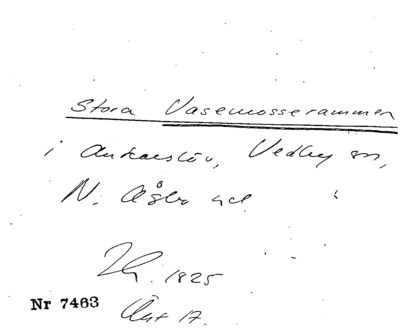 Stora Vasemosserammen
i Ankarslöv, Vedby sn,
N. Åsbo hd
1825
Akt 17.
Nr 7463